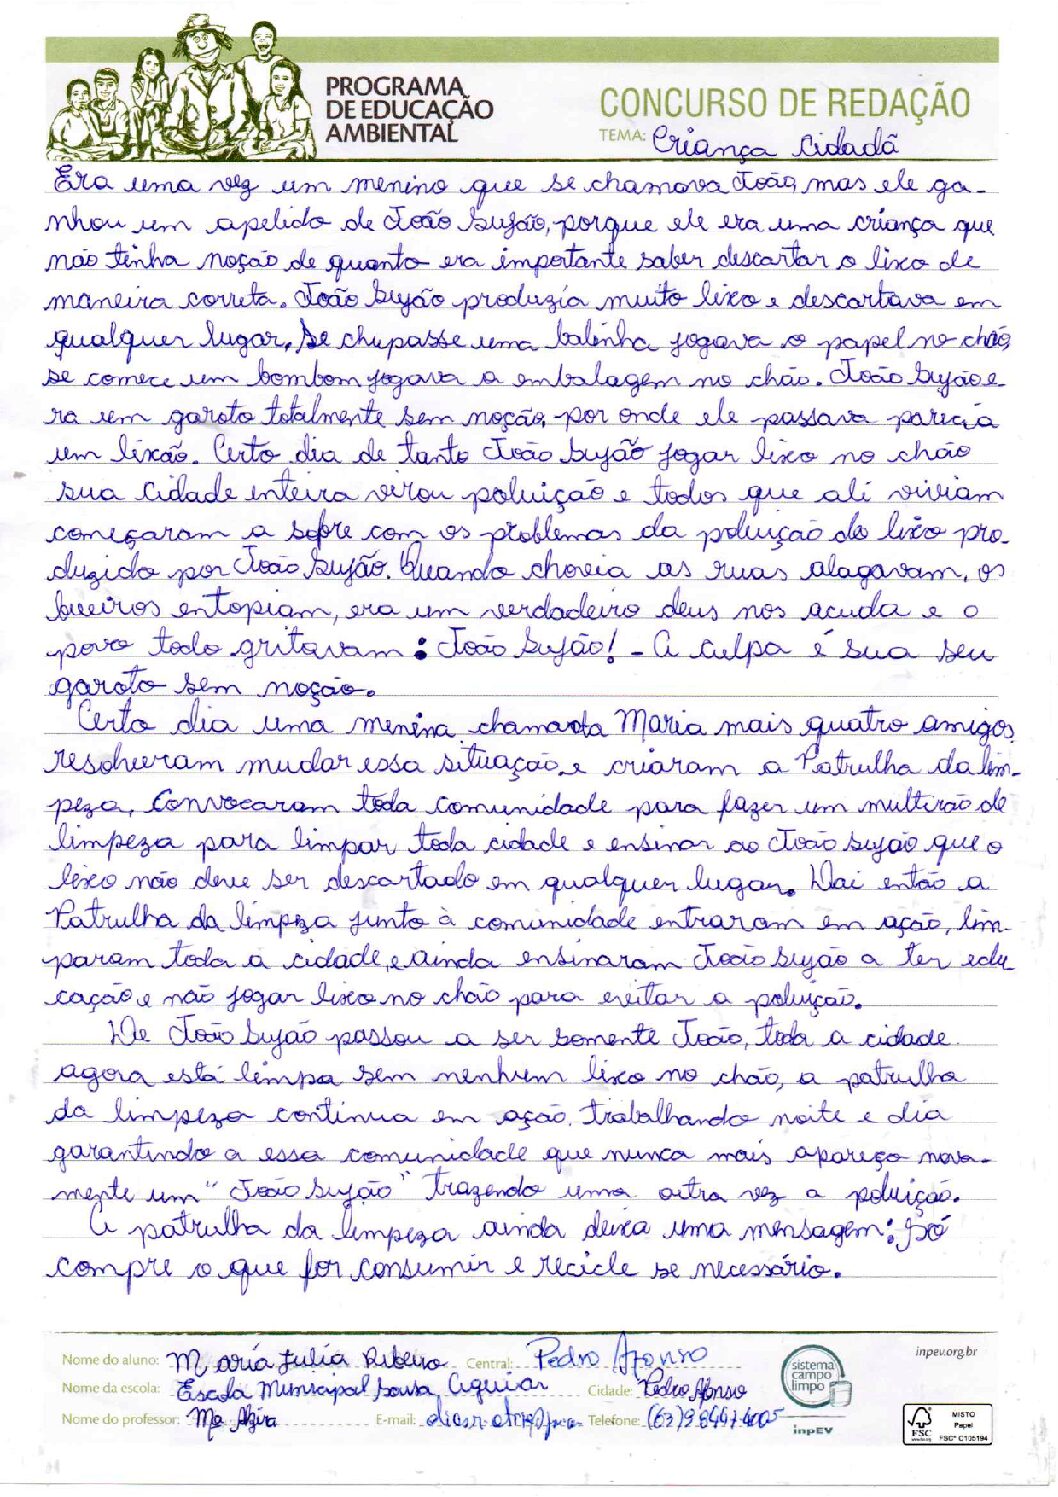 PROGRAMA
DE EDUCAÇÃO
AMBIENTAL
CONCURSO DE REDAÇÃO
TEMA: Criança Cidadã
Era uma vez um menino que se chamava João, mas ele ga-
nhou um apelido de João Sujão, porque ele era uma criança que
não tinha noção de quanto era importante saber descartar o lixo de
maneira correta. João Sujão produzia muito lixo e descartava em
qualquer lugar. Se chupasse uma balinha jogava o papel no chão,
se comece um bombom jogava a embalagem no chão. João Sujão e-
ra um garoto totalmente sem noção, por onde ele passava parecia
um lixão. Certo dia de tanto João Sujão jogar lixo no chão
sua cidade inteira virou poluição e todos que ali viviam
começaram a sofre com os problemas da poluição do lixo pro-
duzido por João Sujão. Quando chovia as ruas alagavam, os
bueiros entopiam, era um verdadeiro deus nos acuda e o
povo todo gritavam: João Sujão! - A culpa é sua seu
garoto sem noção.
Certo dia uma menina chamada Maria mais quatro amigos
resolveram mudar essa situação, e criaram a Patrulha da lim-
peza, convocaram toda comunidade para fazer um multirão de
limpeza para limpar toda cidade e ensinar ao João Sujão que o
lixo não deve ser descartado em qualquer lugar. Dai então a
Patrulha da limpeza junto à comunidade entraram em ação, lim-
param toda a cidade, e ainda ensinaram João Sujão a ter edu
cação e não jogar lixo no chão para evitar a poluição.
De João Sujão passou a ser somente João, toda a cidade
agora está limpa sem nenhum lixo no chão, a patrulha
da limpeza continua em ação, trabalhando noite e dia
garantindo a essa comunidade que nunca mais apareça nova-
mente um "João Sujão" trazendo uma outra vez a poluição.
A patrulha da limpeza ainda deixa uma mensagem: Só
compre o que for consumir e recicle se necessário.
Nome do aluno: Maria Julia Ribeiro Central: Pedro Afonso
Nome da escola: Escola Municipal Sousa Aguiar Cidade: Pedro Afonso
Nome do professor: Ma Alzira E-mail: Telefone:
sistema
campo
limpo
inpEV
inpev.org.br
FSC
MISTO
Papel
FSC® C105194